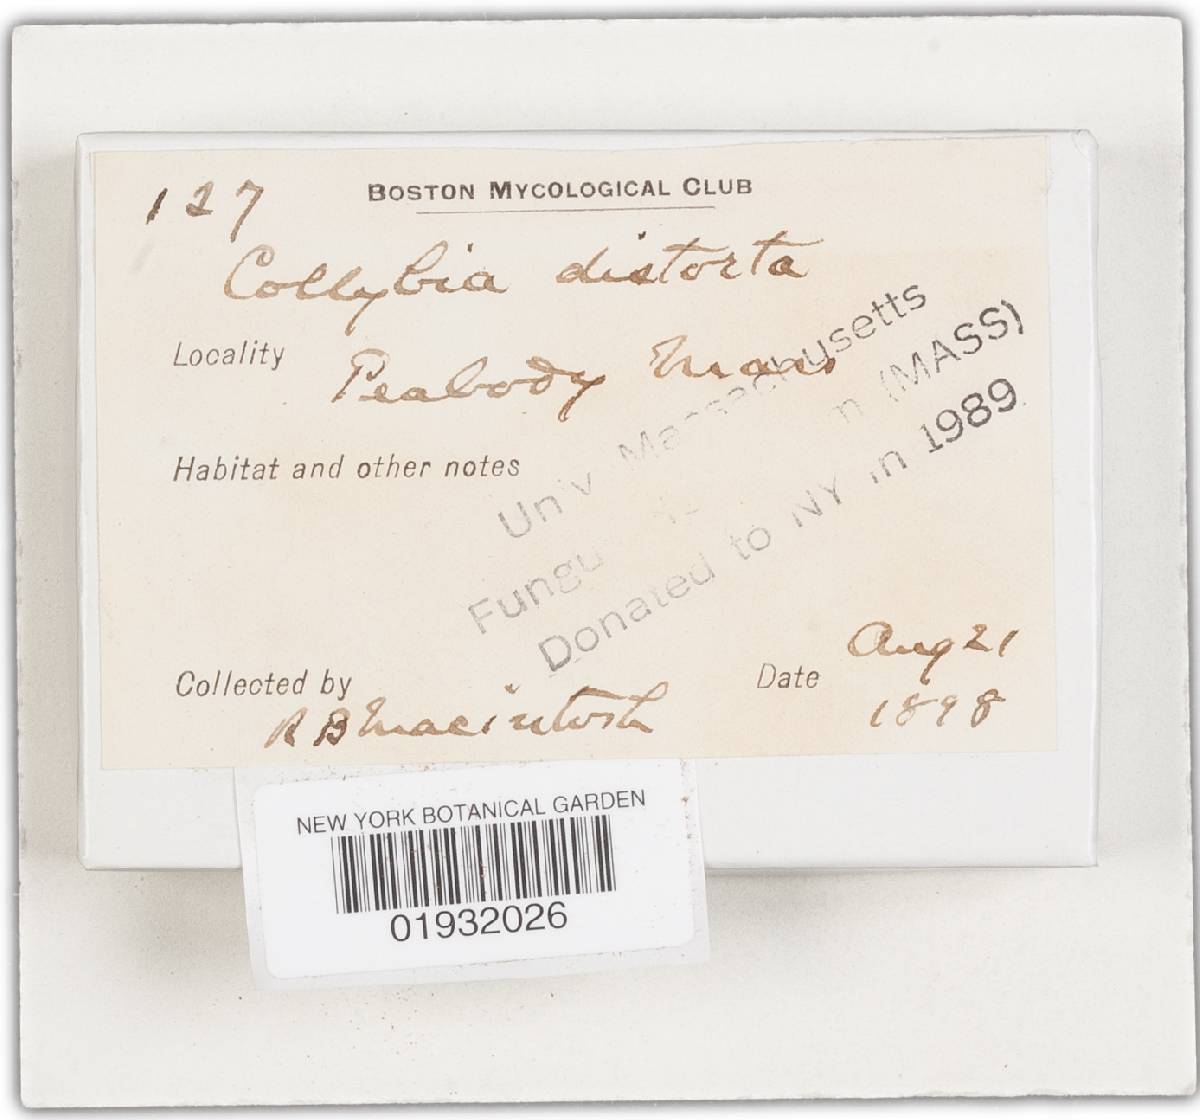 127
BOSTON MYCOLOGICAL CLUB
Collybia distorta
Locality Peabody Mass
Habitat and other notes
Univ Massachusetts
Fungu m (MASS)
Donated to NY in 1989
Collected by
R B Macintosh
Date Aug 21
1898
NEW YORK BOTANICAL GARDEN
01932026